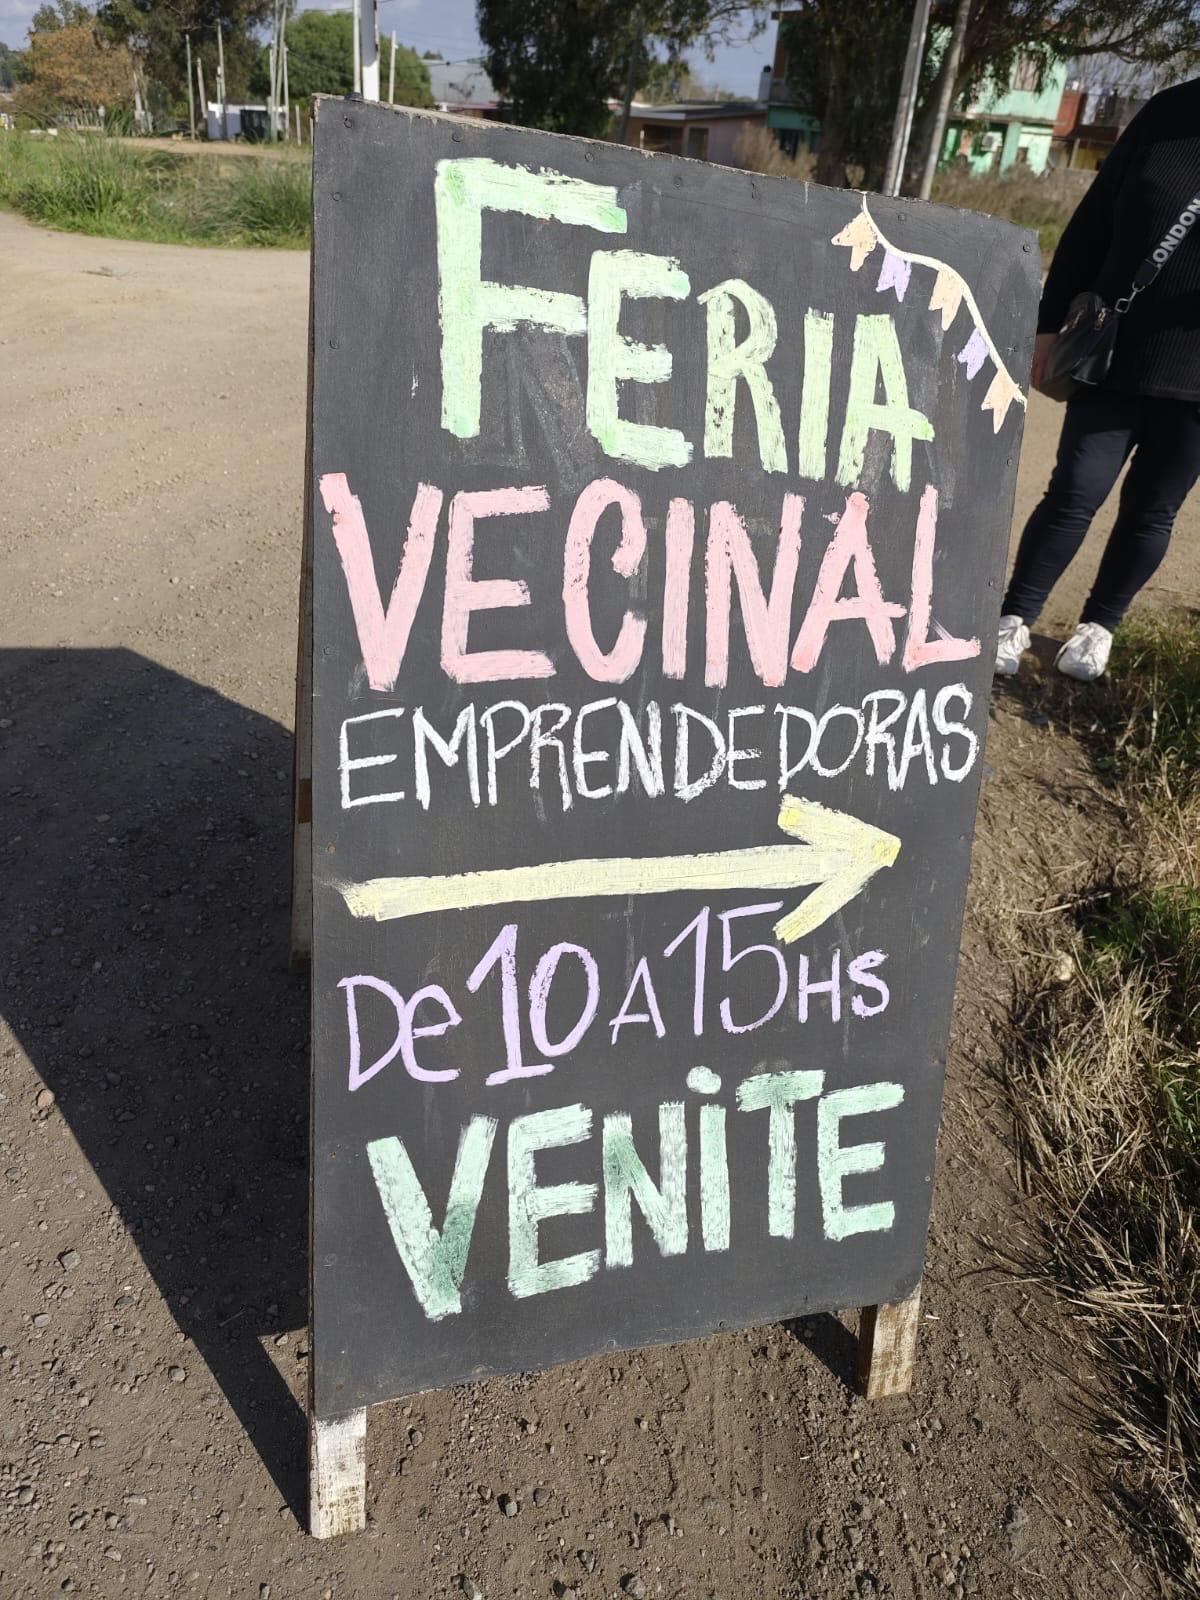 FERIA
VECINAL
EMPRENDEDORAS
De 10 A 15 HS
VENiTE
LONDON